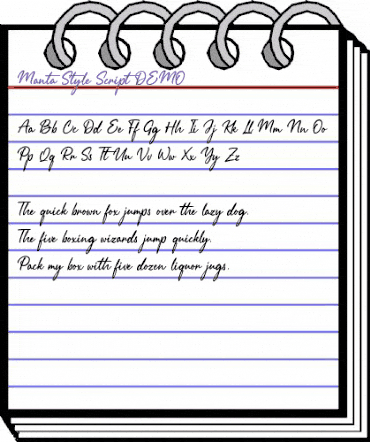 Manta Style Script DEMO
Aa Bb Cc Dd Ee Ff Gg Hh Ii Jj Kk Ll Mm Nn Oo
Pp Qq Rr Ss Tt Uu Vv Ww Xx Yy Zz
The quick brown fox jumps over the lazy dog.
The five boxing wizards jump quickly.
Pack my box with five dozen liquor jugs.